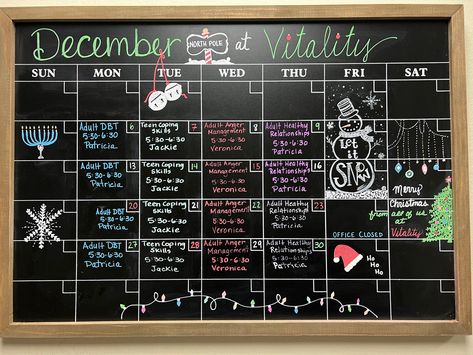 December NORTH POLE at Vitality
SUN MON TUE WED THU FRI SAT
Adult DBT 6 Teen Coping 7 Adult Anger 8 Adult Healthy 9
5:30-6:30 Skills Management Relationships
Patricia 5:30-6:30 5:30-6:30 5:30-6:30
Jackie Veronica Patricia
Let
it
SNOW
Adult DBT 13 Teen Coping 14 Adult Anger 15 Adult Healthy 16
5:30-6:30 Skills Management Relationships
Patricia 5:30-6:30 5:30-6:30 5:30-6:30
Jackie Veronica Patricia
Merry
Christmas
from all of us at
Vitality
20 21 22 23
Adult DBT Teen Coping Adult Anger Adult Healthy
5:30-6:30 Skills Management Relationships
Patricia 5:30-6:30 5:30-6:30 5:30-6:30
Jackie Veronica Patricia
OFFICE CLOSED
Adult DBT 27 Teen Coping 28 Adult Anger 29 Adult Healthy 30
5:30-6:30 Skills Management Relationships
Patricia 5:30-6:30 5:30-6:30 5:30-6:30
Jackie Veronica Patricia
Ho
Ho
Ho